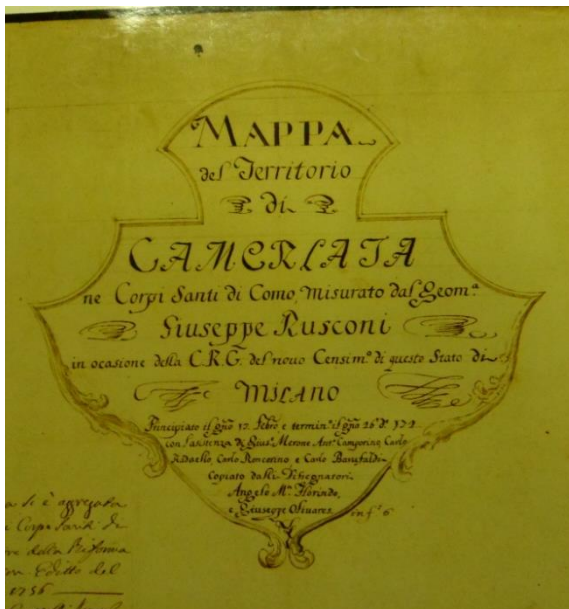 MAPPA
del Territorio
di
CAMERLATA
ne Corpi Santi di Como, Misurato dal Geom.ª
Giuseppe Rusconi
in ocasione della C.R.G. del nouo Censim.º di questo Stato di
MILANO
Principiato il gño 12. Febrº e termin.º il gño 26 dº
con l'asistenza di Gius.ᵉ Merone Ant.º Camporino Carlo
Carlo Roncorino e Carlo
Copiato dalli Disegnatori
Angelo M.ª Florindo,
e Giuseppe Oliuares in f.º 6
a si è agregata
Corpi Santi di
re della Riforma
Editto del
1756